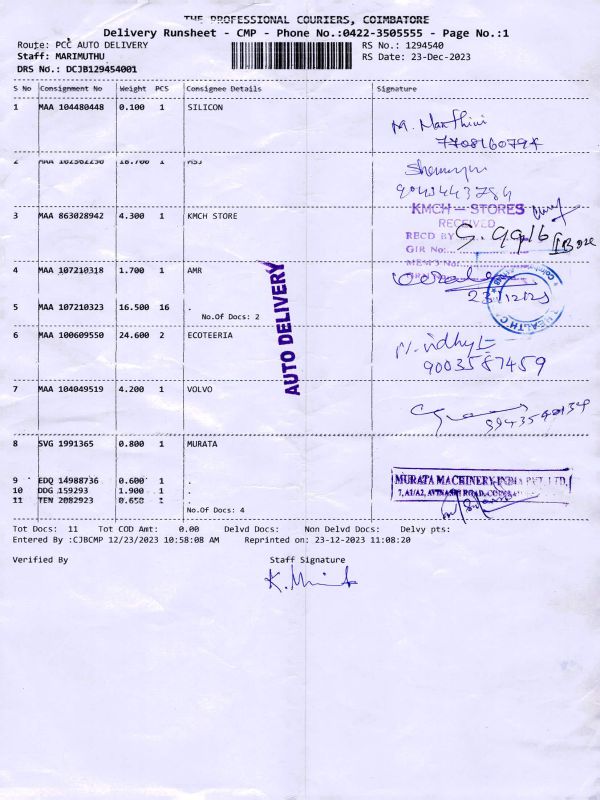 THE PROFESSIONAL COURIERS, COIMBATORE
Delivery Runsheet - CMP - Phone No.:0422-3505555 - Page No.:1
Route: PCC AUTO DELIVERY
RS No.: 1294540
Staff: MARIMUTHU
RS Date: 23-Dec-2023
DRS No.: DCJB129454001
S No Consignment No Weight PCS Consignee Details Signature
1 MAA 104480448 0.100 1 SILICON
7708160794
2 MAA 102502250 18.700 1 MSJ
3 MAA 863028942 4.300 1 KMCH STORE
KMCH - STORES
RECEIVED
RECD BY
GIR No:
4 MAA 107210318 1.700 1 AMR
23/12/23
5 MAA 107210323 16.500 16 .
No.Of Docs: 2
AUTO DELIVERY
6 MAA 100609550 24.600 2 ECOTEERIA
9003587459
7 MAA 104049519 4.200 1 VOLVO
8 SVG 1991365 0.800 1 MURATA
9 EDQ 14988736 0.600 1 .
10 DDG 159293 1.900 1 .
11 TEN 2082923 0.650 1 .
No.Of Docs: 4
MURATA MACHINERY INDIA PVT. LTD.
7, A1/A2, AVINASHI ROAD,
Tot Docs: 11 Tot COD Amt: 0.00 Delvd Docs: Non Delvd Docs: Delvy pts:
Entered By :CJBCMP 12/23/2023 10:58:08 AM Reprinted on: 23-12-2023 11:08:20
Verified By Staff Signature